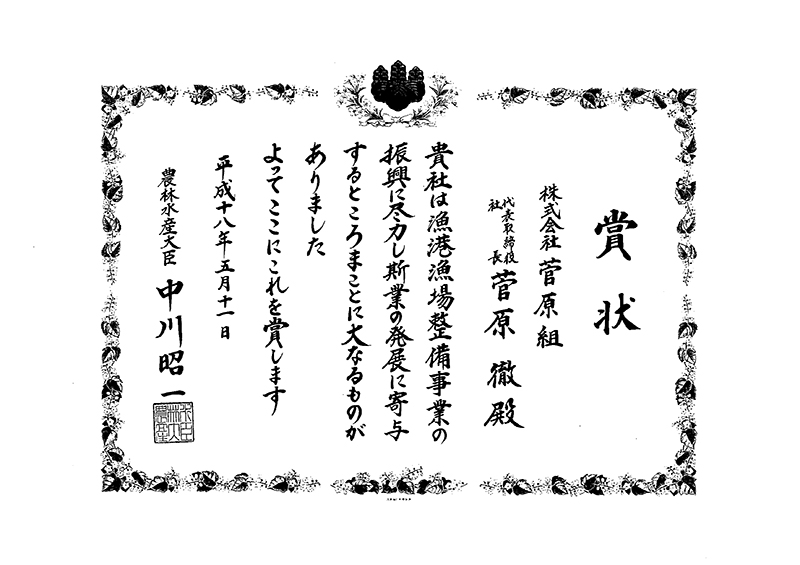 賞状
株式会社 菅原組
代表取締役
社長 菅原 徹 殿
貴社は漁港漁場整備事業の
振興に尽力し斯業の発展に寄与
するところまことに大なるものが
ありました
よってここにこれを賞します
平成十八年五月十一日
農林水産大臣 中川昭一